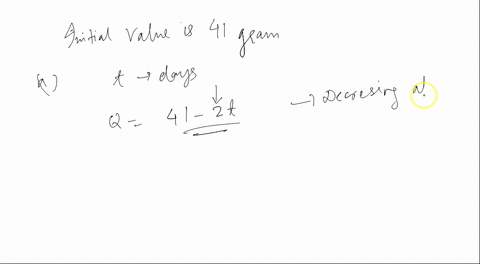 Initial value is 41 gram
(a) t → days
Q = 41 - 2t → Decresing